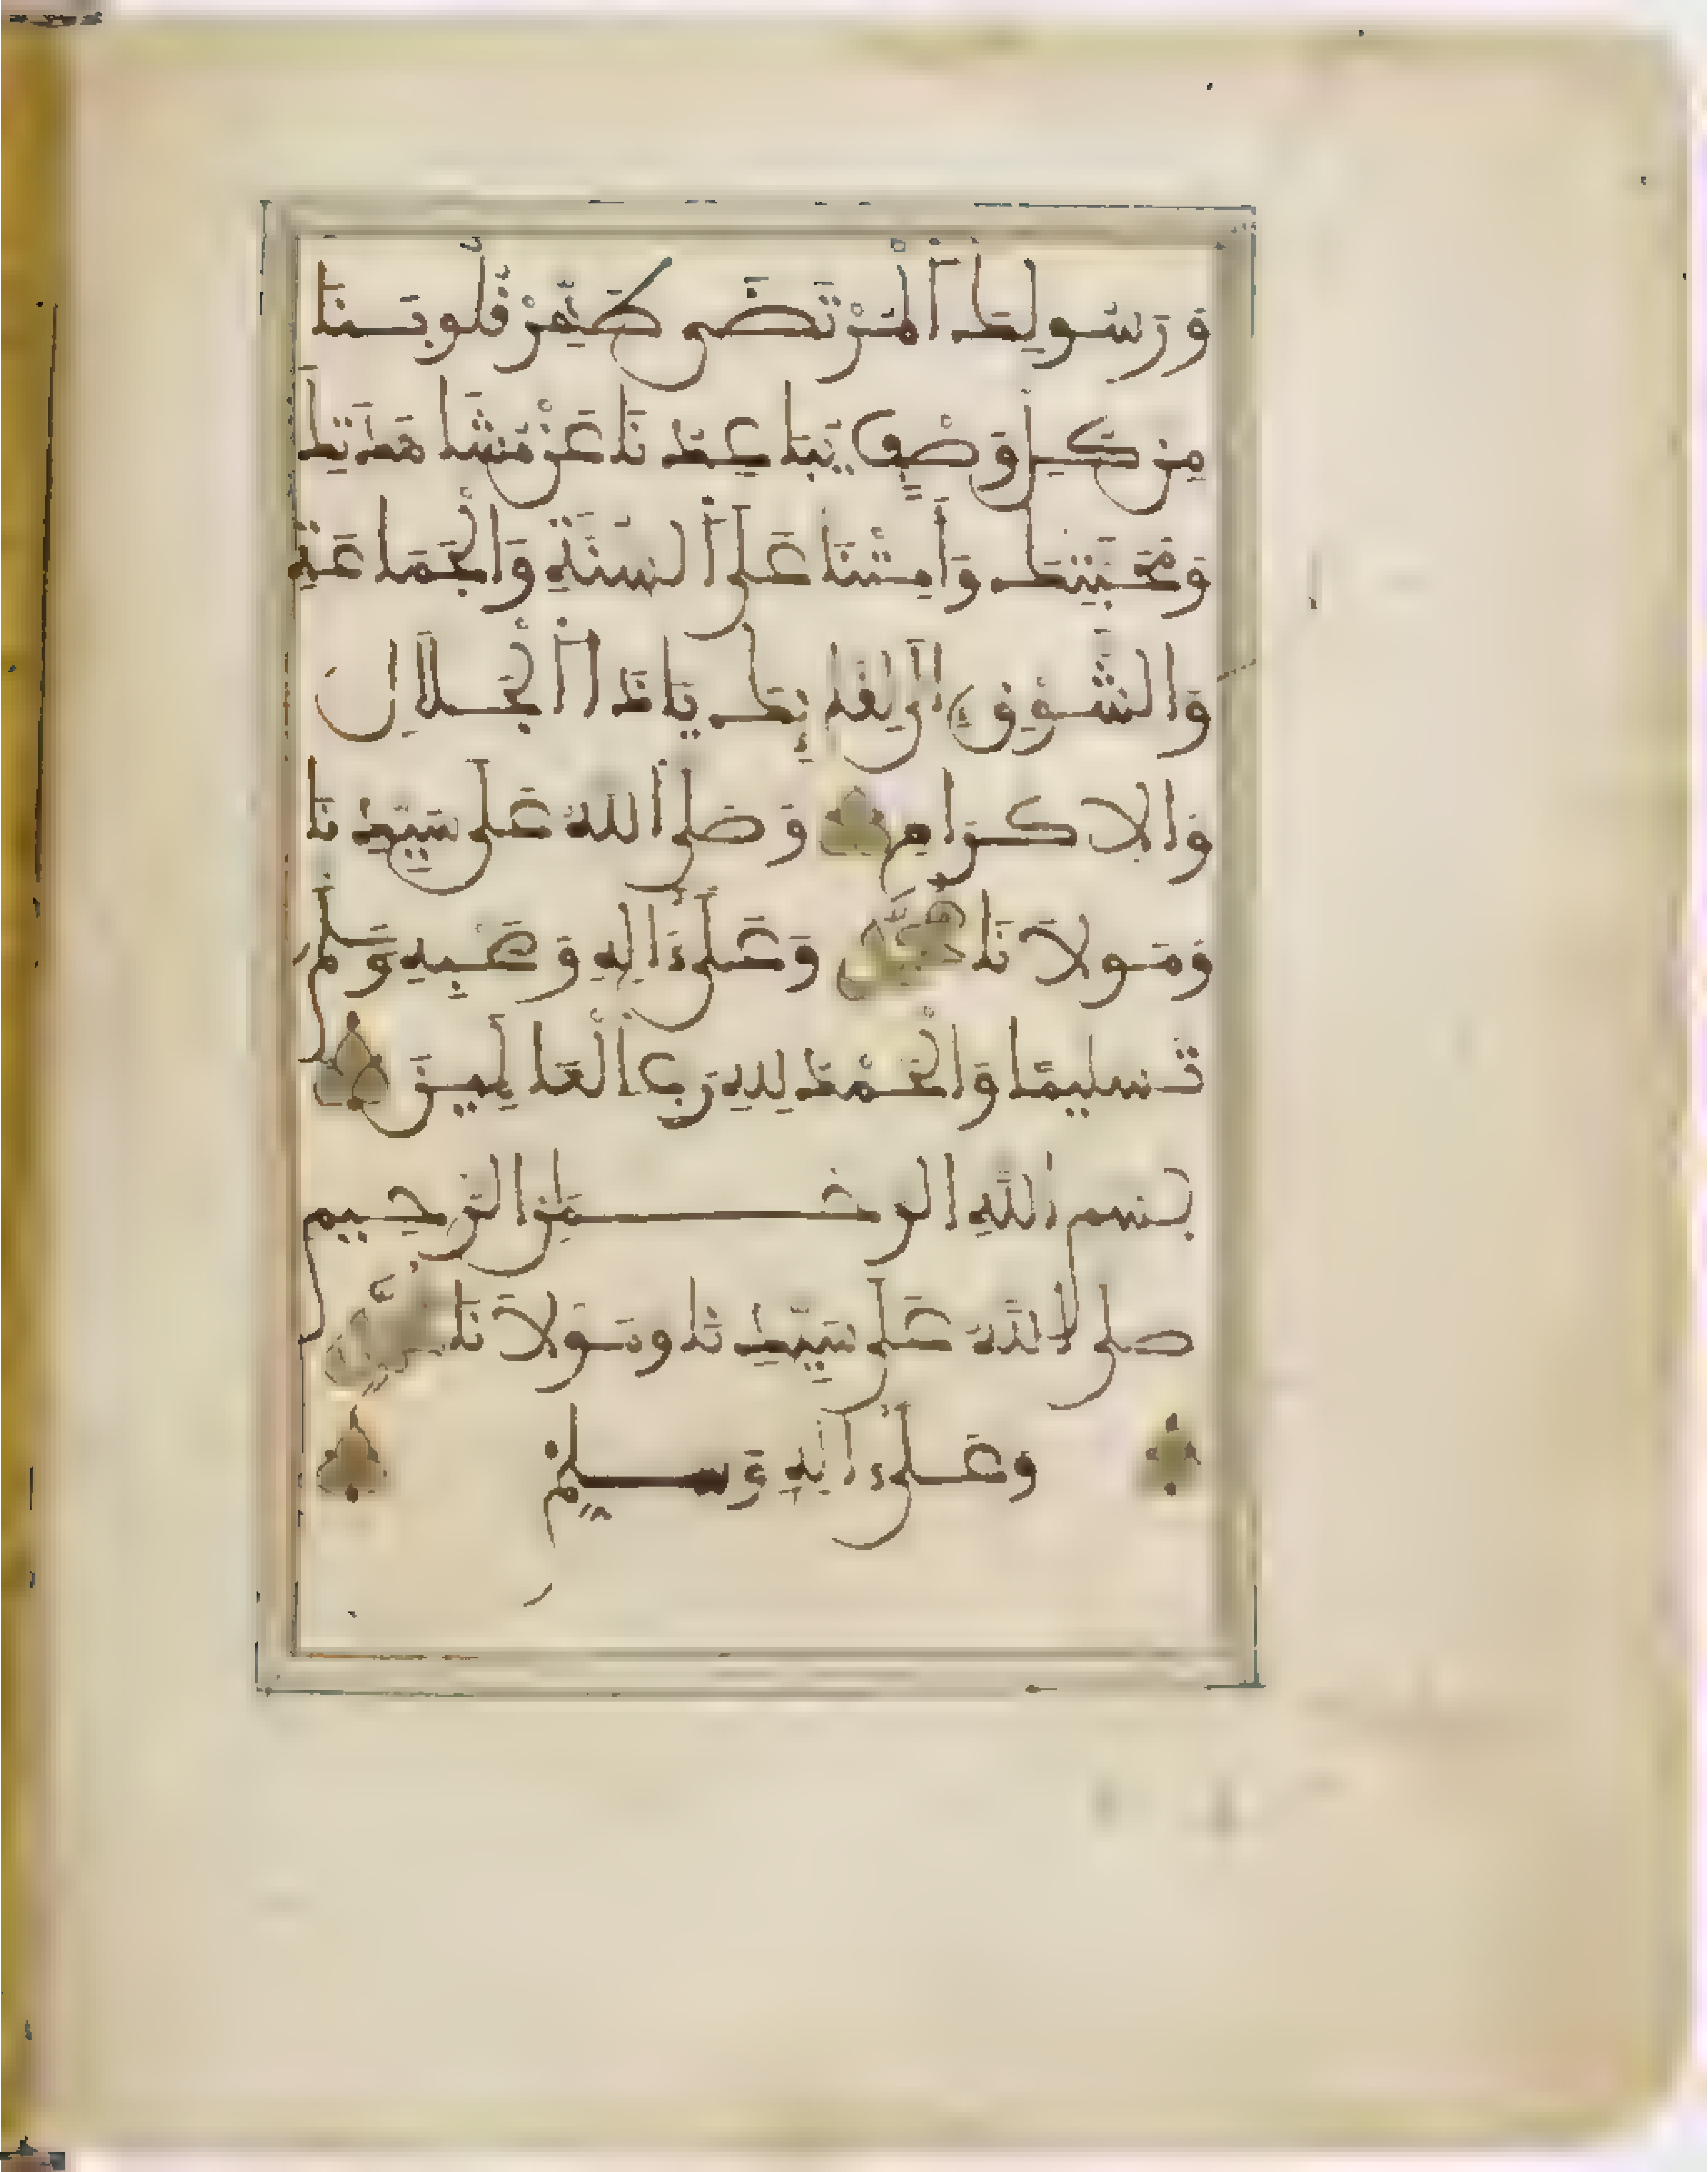 وَرَسُولِكَ الْمُرْتَضَى طَهِّرْ قُلُوبَنَا
مِن كُلِّ وَصْفٍ يُبَاعِدُنَا عَنْ مُشَاهَدَتِكَ
وَمَحَبَّتِكَ وَأَمِتْنَا عَلَى السُّنَّةِ وَالْجَمَاعَةِ
وَالشَّوْقِ إِلَى لِقَائِكَ يَا ذَا الْجَلَالِ
وَالاكرَامِ وَصَلَّى اللهُ عَلَى سَيِّدِنَا
وَمَوْلَانَا مُحَمَّدٍ وَعَلَى ءَالِهِ وَصَحْبِهِ وَسَلَّمَ
تَسْلِيمًا وَالْحَمْدُ لِلهِ رَبِّ الْعَالَمِينَ
بِسْمِ اللهِ الرَّحْمَنِ الرَّحِيمِ
صَلَّى اللهُ عَلَى سَيِّدِنَا وَمَوْلَانَا مُحَمَّدٍ
وَعَلَى ءَالِهِ وَسَلِّمْ